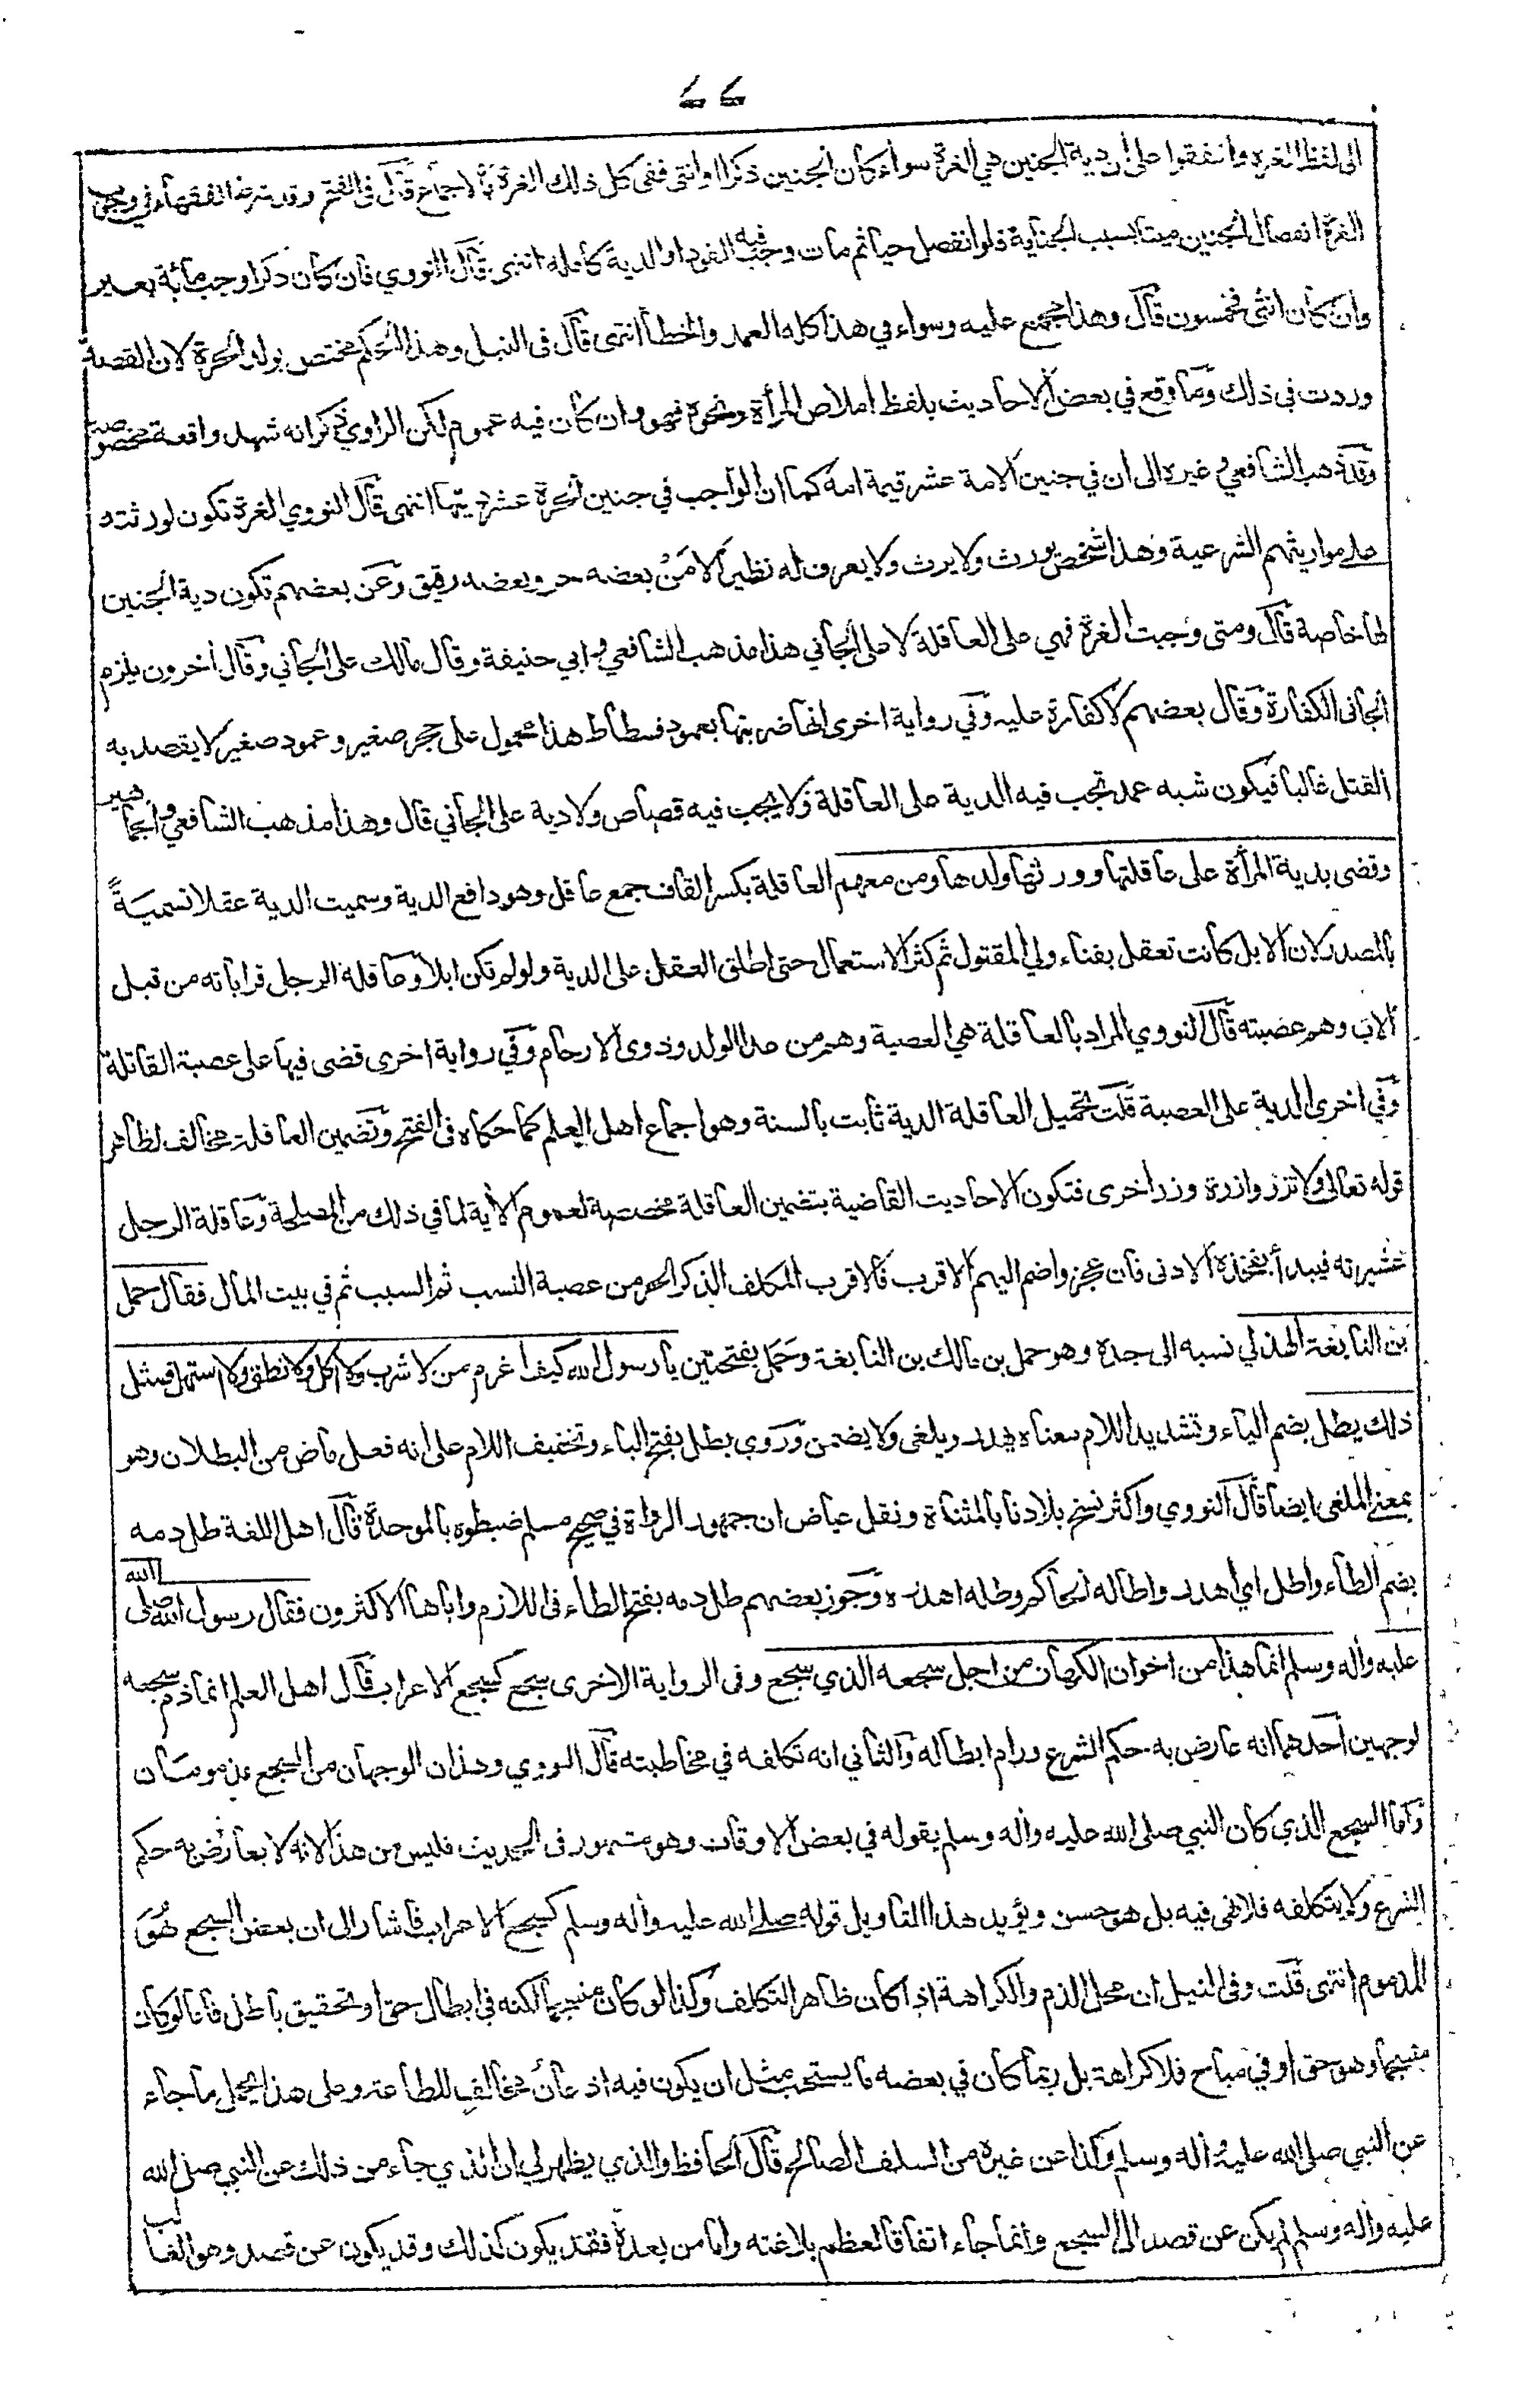 ٦٦
الى لفظ الغرة واتفقوا على ان دية الجنين هي الغرة سواء كان الجنين ذكرا او انثى ففى كل ذلك الغرة بالاجماع قال فى الفتح وقد شرط الفقهاء في وجوب
الغرة انفصال الجنين ميتا بسبب الجناية فلو انفصل حيا ثم مات وجب فيه القود او الدية كاملة انتهى قال النووي فان كان ذكرا وجب مائة بعير
وان كان انثى فخمسون قال وهذا مجمع عليه وسواء في هذا كله العمد والخطأ انتهى قال فى النيل وهذا الحكم مختص بولد الحرة لان القصة
وردت فى ذلك وما وقع في بعض الاحاديث بلفظ املاص المرأة ونحوه فهو وان كان فيه عموم لكن الراوي ذكر انه شهد واقعة مخصوصة
وقد ذهب الشافعي وغيره الى ان في جنين الامة عشر قيمة امه كما ان الواجب في جنين الحرة عشر ديتها انتهى قال النووي الغرة تكون لورثته
على مواريثهم الشرعية وهذا شخص يورث ولا يرث ولا يعرف له نظير الا من بعضه حر وبعضه رقيق وعن بعضهم تكون دية الجنين
لها خاصة قال ومتى وجبت الغرة فهي على العاقلة لا على الجاني هذا مذهب الشافعي وابي حنيفة وقال مالك على الجاني وقال اخرون يلزم
الجانى الكفارة وقال بعضهم لا كفارة عليه وفي رواية اخرى انها ضربتها بعمود فسطاط هذا محمول على حجر صغير وعمود صغير لا يقصد به
القتل غالبا فيكون شبه عمد تجب فيه الدية على العاقلة ولا يجب فيه قصاص ولا دية على الجاني قال وهذا مذهب الشافعي والجماهير
وقضى بدية المرأة على عاقلتها وورثها ولدها ومن معهم العاقلة بكسر القاف جمع عاقل وهو دافع الدية وسميت الدية عقلا تسمية
بالمصدر لان الابل كانت تعقل بفناء ولي المقتول ثم كثر الاستعمال حتى اطلق العقل على الدية ولو لم تكن ابلا وعاقلة الرجل قراباته من قبل
الاب وهم عصبته قال النووي المراد بالعاقلة هي العصبة وهم من عدا الولد وذوى الارحام وفي رواية اخرى قضى فيها على عصبة القاتلة
وفي اخرى الدية على العصبة قلت تحميل العاقلة الدية ثابت بالسنة وهو اجماع اهل العلم كما حكاه فى الفتح وتضمين العاقلة مخالف لظاهر
قوله تعالى ولا تزر وازرة وزر اخرى فتكون الاحاديث القاضية بتضمين العاقلة مخصصة لعموم الأية لما في ذلك من المصلحة وعاقلة الرجل
عشيرته فيبدأ بفخذه الادنى فان عجزوا ضم اليهم الاقرب فالاقرب المكلف الذكر الحر من عصبة النسب ثم السبب ثم في بيت المال فقال حمل
بن النابغة الهذلي نسبه الى جده وهو حمل بن مالك بن النابغة وحمل بفتحتين يا رسول الله كيف اغرم من لا شرب ولا اكل ولا نطق ولا استهل فمثل
ذلك يطل بضم الياء وتشديد اللام معناه يهدر ويلغى ولا يضمن وروي بطل بفتح الباء وتخفيف اللام على انه فعل ماض من البطلان وهو
بمعنى الملغى ايضا قال النووي واكثر نسخ بلادنا بالمثناة ونقل عياض ان جمهور الرواة في صحيح مسلم ضبطوه بالموحدة قال اهل اللغة طل دمه
بضم الطاء واطل اي اهدر واطاله الحاكم وطله اهدره وجوز بعضهم طل دمه بفتح الطاء فى اللازم واباها الاكثرون فقال رسول الله صلى الله
عليه واله وسلم انما هذا من اخوان الكهان من اجل سجعه الذي سجع وفى الرواية الاخرى سجع كسجع الاعراب قال اهل العلم انما ذم سجعه
لوجهين احدهما انه عارض به حكم الشرع ورام ابطاله والثاني انه تكلفه في مخاطبته قال النووي وهذان الوجهان من السجع مذمومان
واما السجع الذي كان النبي صلى الله عليه واله وسلم يقوله في بعض الاوقات وهو مشهور فى الحديث فليس من هذا لانه لا يعارض به حكم
الشرع ولا يتكلفه فلا نهى فيه بل هو حسن ويؤيد هذا التاويل قوله صلى الله عليه واله وسلم كسجع الاعراب فاشار الى ان بعض السجع هو
المذموم انتهى قلت وفى النيل ان محل الذم والكراهة اذا كان ظاهر التكلف وكذا لو كان منسجما لكنه في ابطال حق او تحقيق باطل فاما لو كان
منسجما وهو حق او في مباح فلا كراهة بل ربما كان في بعضه ما يستحب مثل ان يكون فيه اذعان مخالف للطاعة وعلى هذا يحمل ما جاء
عن النبي صلى الله عليه واله وسلم وكذا عن غيره من السلف الصالح قال الحافظ والذي يظهر لي ان الذي جاء من ذلك عن النبي صلى الله
عليه واله وسلم لم يكن عن قصد الى السجع وانما جاء اتفاقا لعظم بلاغته واما من بعده فقد يكون كذلك وقد يكون عن قصد وهو الغالب